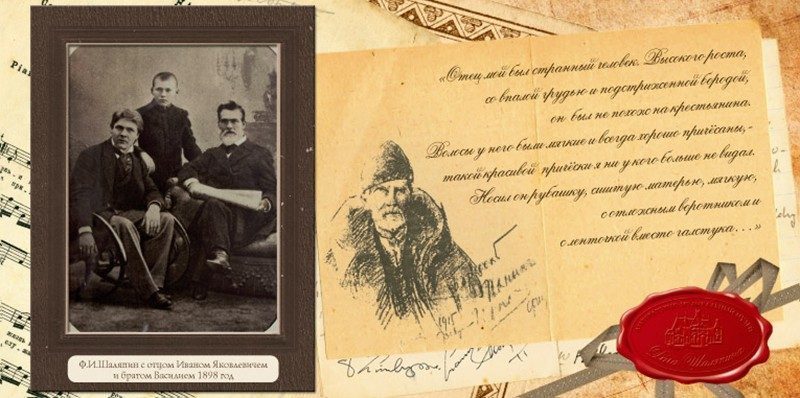 Piano
Ф.И.Шаляпин с отцом Иваном Яковлевичем
и братом Василием 1898 год
«Отец мой был странный человек. Высокого роста,
со впалой грудью и подстриженной бородой,
он был не похож на крестьянина.
Волосы у него были мягкие и всегда хорошо причёсаны,-
такой красивой причёски я ни у кого больше не видал.
Носил он рубашку, сшитую матерью, мягкую,
с отложным воротником и
с ленточкой вместо галстука. . .»